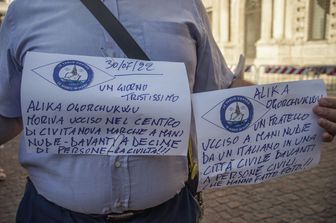 30/07/22
UN GIORNO
TRISTISSIMO
ALIKA OGORCHUKWU
MORIVA UCCISO NEL CENTRO
DI CIVITANOVA MARCHE A MANI
NUDE - DAVANTI A DECINE
DI PERSONE
CIVILI!!!
ALIKA
OGORCHUKWU
UN FRATELLO
UCCISO A MANI NUDE
DA UN ITALIANO IN UNA
CITTÀ CIVILE DAVANTI
A PERSONE CIVILI
CHE HANNO FATTO FOTO!!!